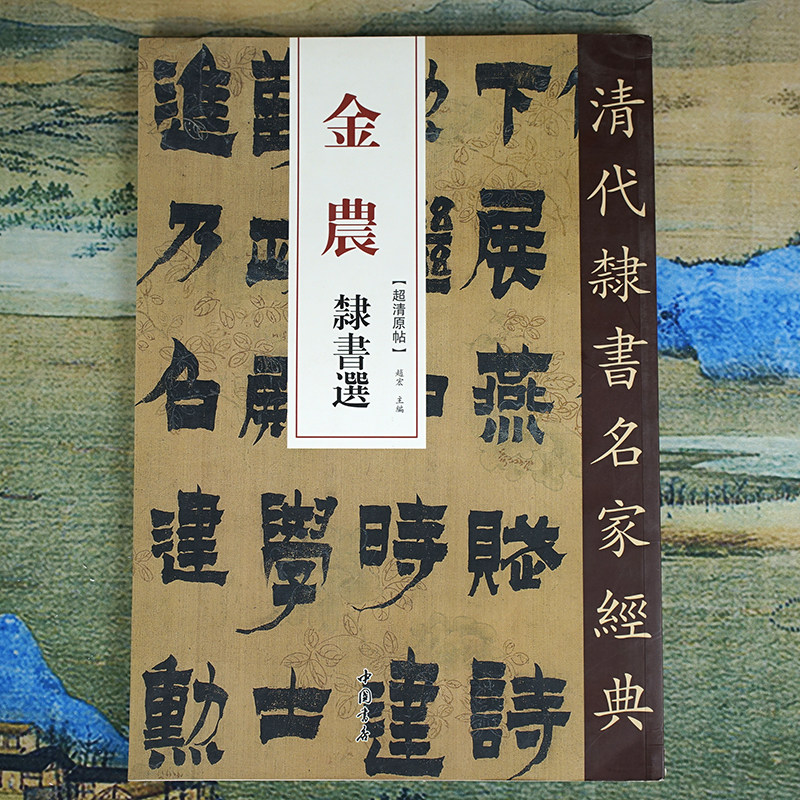 清代隸書名家經典
金農
隸書選
【超清原帖】
趙宏 主編
中国书店
下展燕賦詩
時建
學士
進乃名建勳